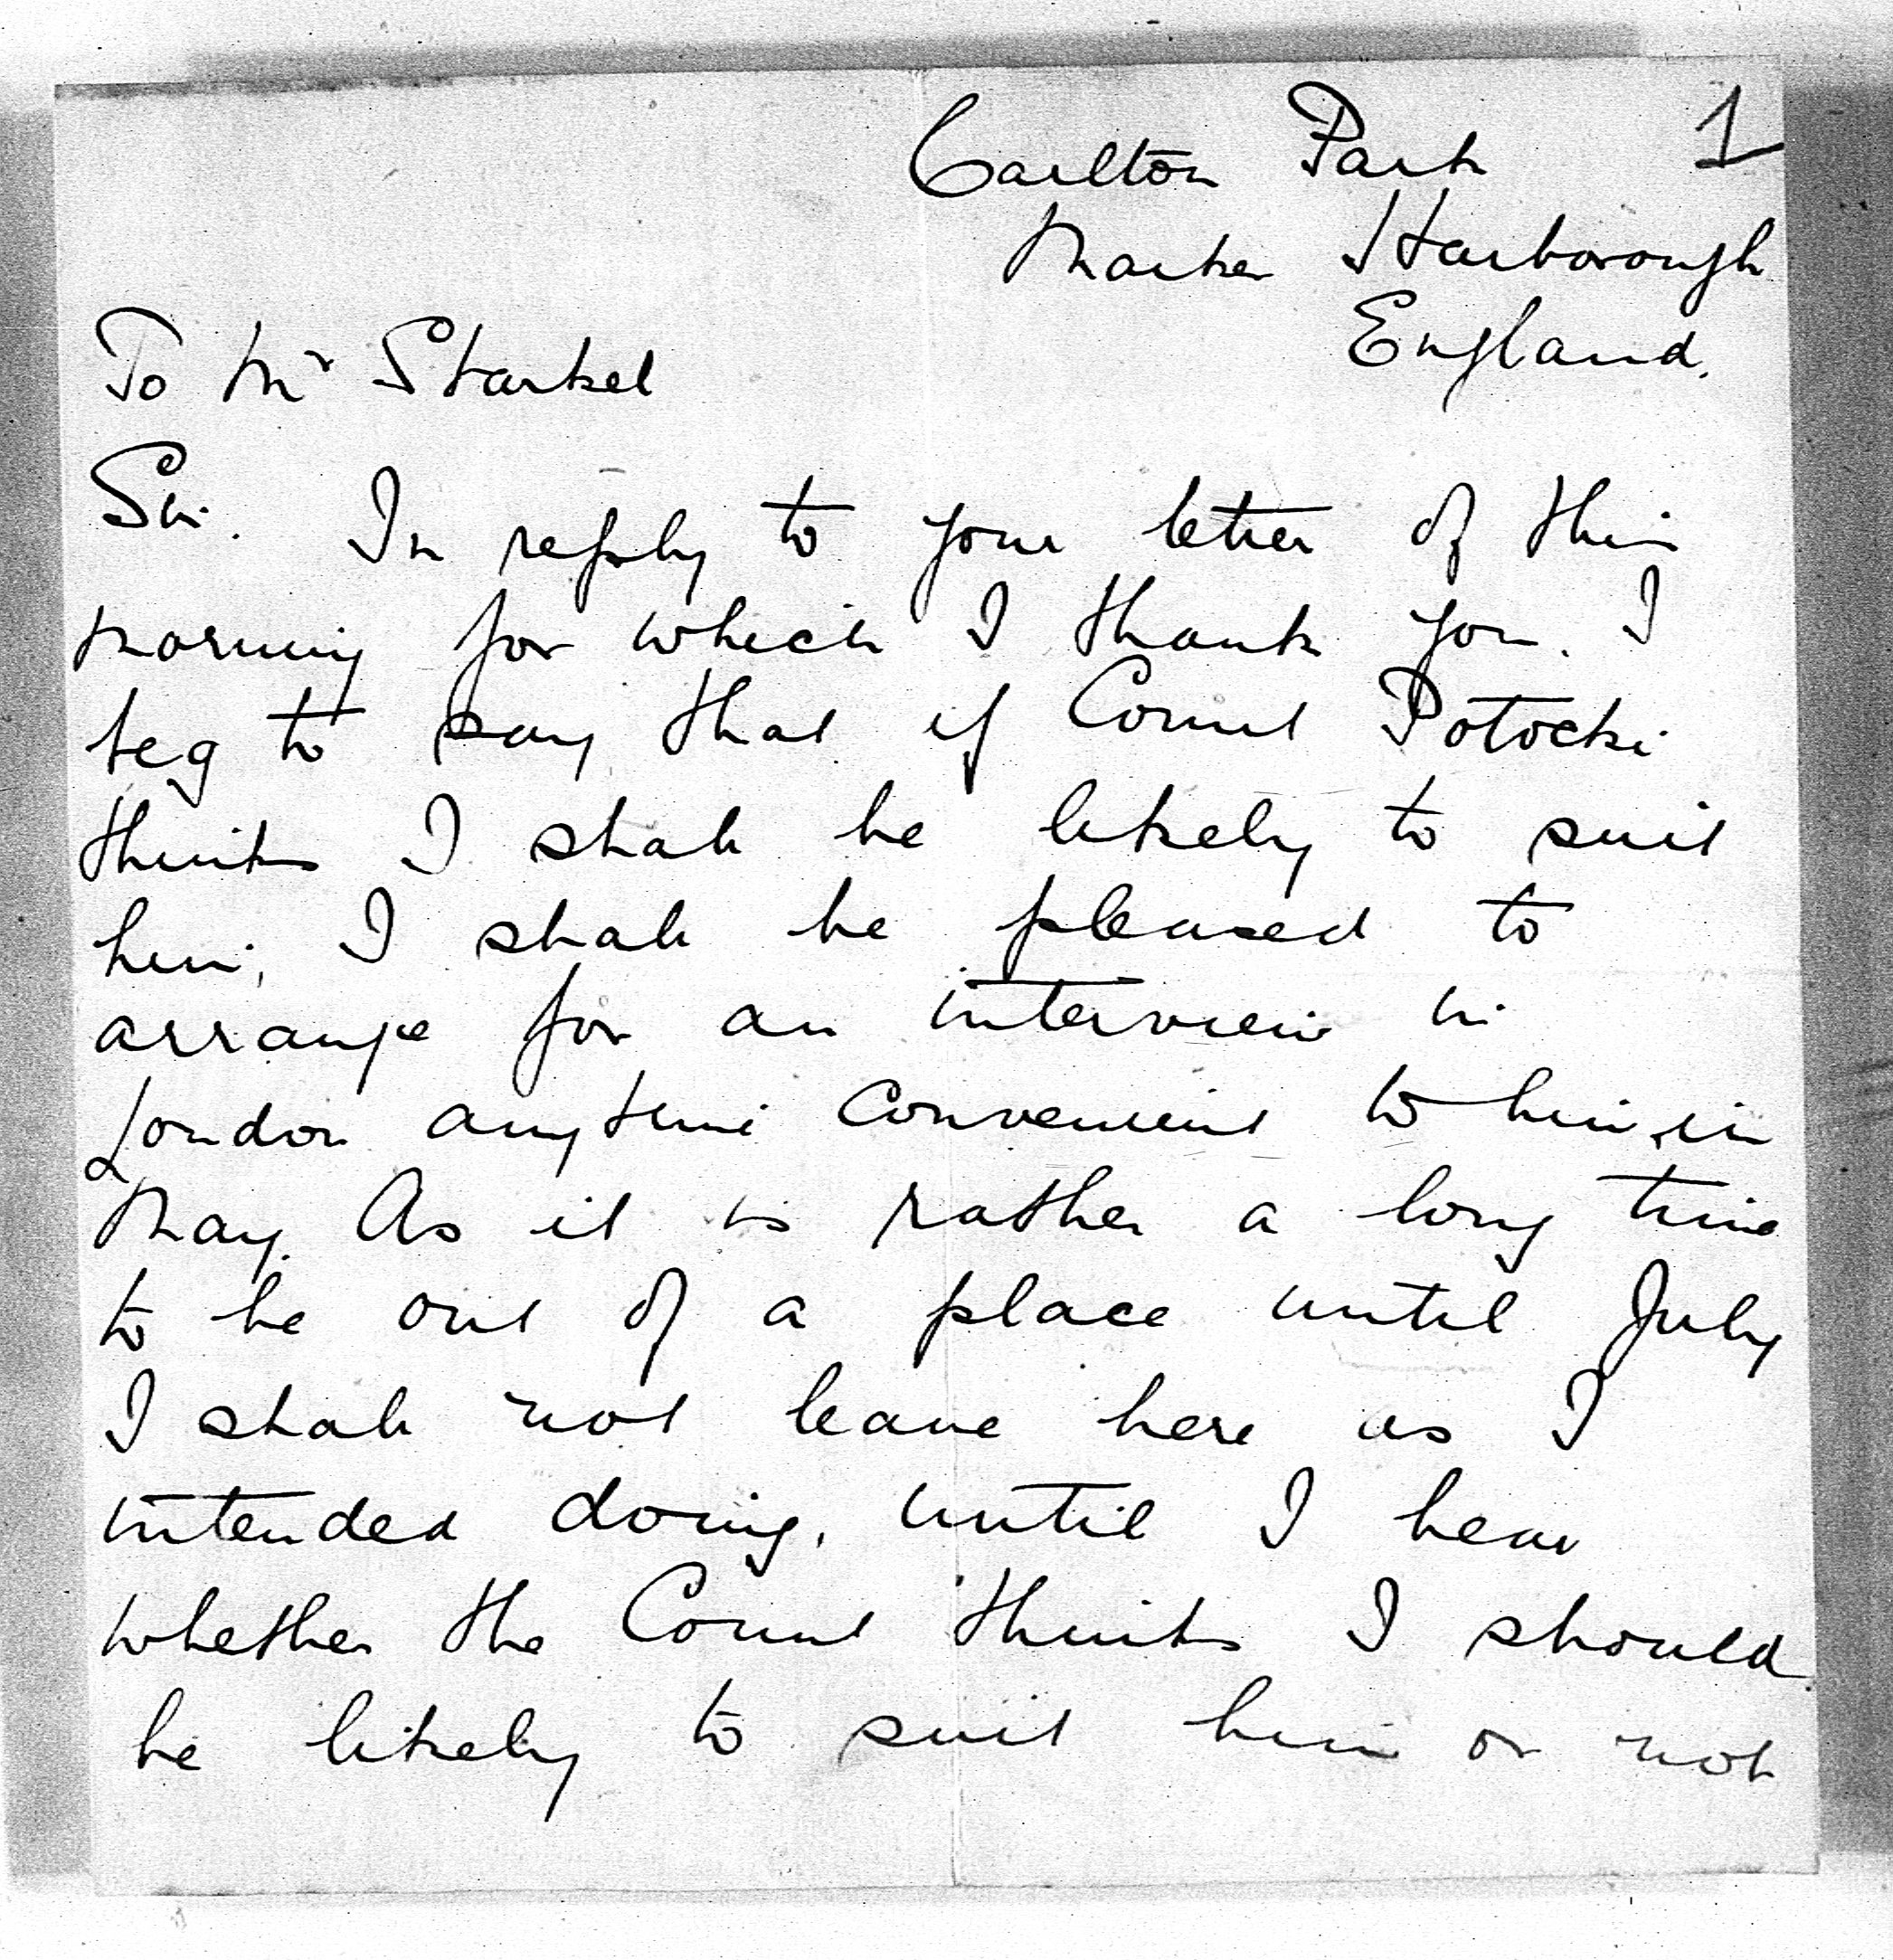 1
Carlton Park
Market Harborough
England.
To Mr Starkel
Sir. In reply to your letter of this
morning for which I thank you. I
beg to say that if Count Potocki
thinks I shall be likely to suit
him, I shall be pleased to
arrange for an interview in
London anytime convenient to him, in
May. As it is rather a long time
to be out of a place until July
I shall not leave here as I
intended doing, until I hear
whether the Count thinks I should
be likely to suit him or not